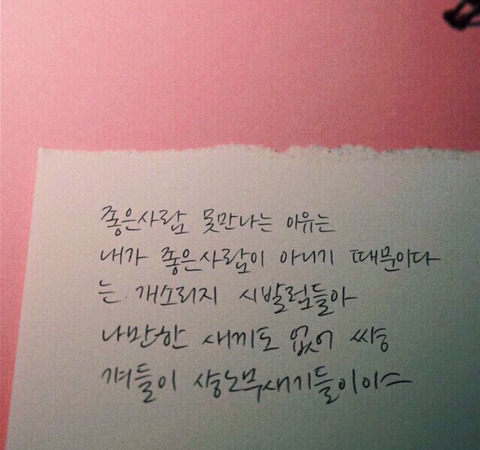 좋은사람 못만나는 이유는
내가 좋은사람이 아니기 때문이다
는 개소리지 시발럼들아
나만한 새끼도 없어 씨송
겨들이 사송노무새기들이이스